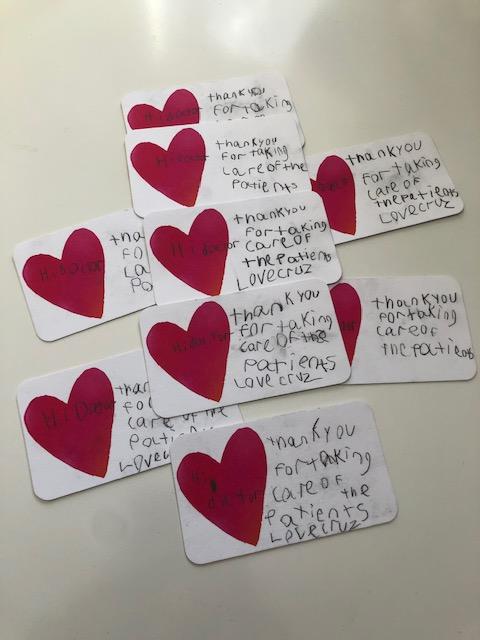 thankyou
For taking
Hi doctor
thankyou
For taking
care of the
patients
thankyou
For taking
care of
the patients
Love cruz
Hi doctor
tha
Fo
ca
Pa
Hi doctor
thankyou
for taking
care of
the patients
Love cruz
Hi doctor
thankyou
for taking
care of the
patients
Love cruz
thankyou
for taking
care of
the patients
Hi Doctor
than
fo
care of the
patien
Love c
Hi
doctor
thankyou
for taking
care of
the
patients
Love cruz